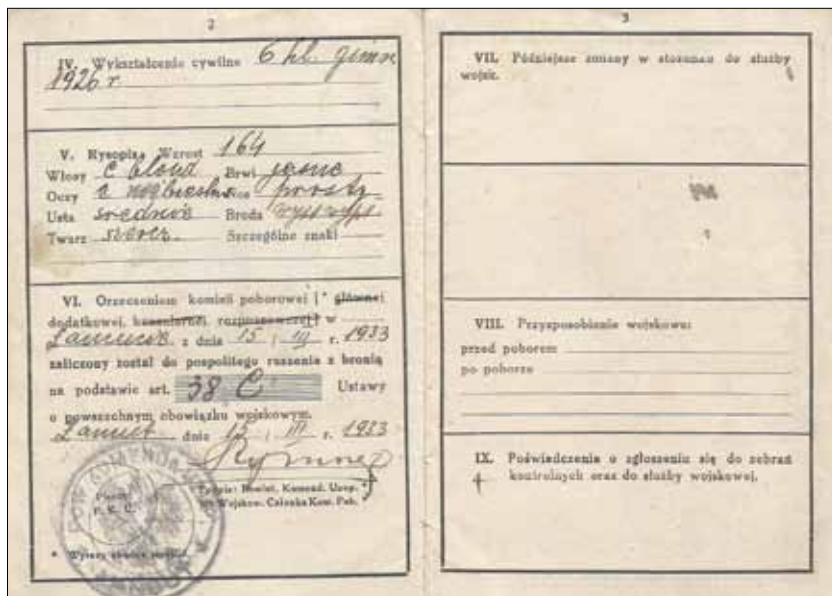 2
IV. Wykształcenie cywilne 6 kl. gimn
1926 r.
V. Rysopis: Wzrost 164
Włosy c blond Brwi jasne
Oczy nos prosty
Usta średnie Broda
Twarz Szczególne znaki
VI. Orzeczeniem komisji poborowej (* głównej
dodatkowej, rozpoznawczej) w
Łańcucie z dnia 15 / III r. 1933
zaliczony został do pospolitego ruszenia z bronią
na podstawie art. 38 C Ustawy
o powszechnym obowiązku wojskowym.
Łańcut dnia 15 / III r. 1933
Pieczęć
P. K. U.
Podpis: Powiat. Komend. Uzup. *)
Wojskow. Członka Kom. Pob.
* Wyrazy
3
VII. Późniejsze zmiany w stosunku do służby
wojsk.
VIII. Przysposobienie wojskowe:
przed poborem
po poborze
IX. Poświadczenia o zgłoszeniu się do zebrań
kontrolnych oraz do służby wojskowej.